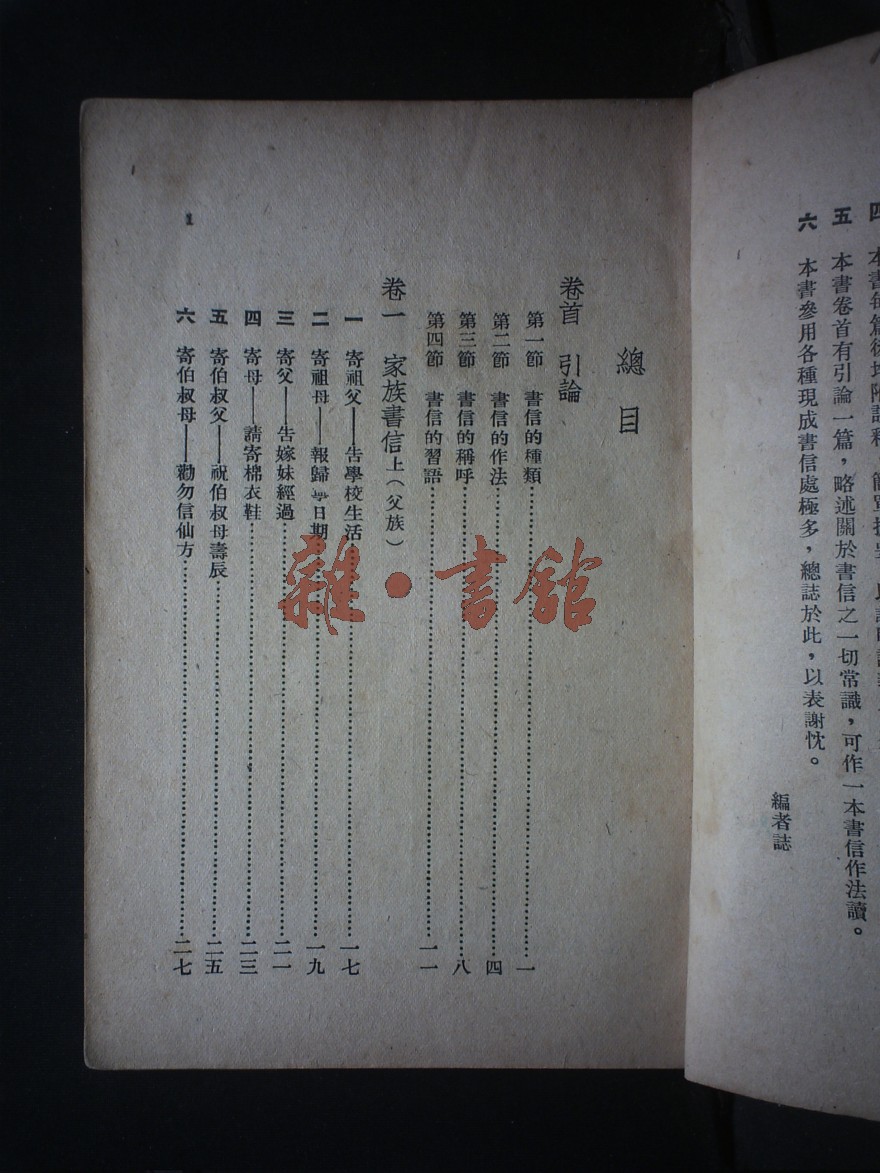 五 本書卷首有引論一篇，略述關於書信之一切常識，可作一本書信作法讀。
六 本書參用各種現成書信處極多，總誌於此，以表謝忱。
編者誌
總目
卷首 引論
第一節 書信的種類……一
第二節 書信的作法……四
第三節 書信的稱呼……八
第四節 書信的習語……一一
卷一 家族書信上（父族）
一 寄祖父——告學校生活……一七
二 寄祖母——報歸 日期……一九
三 寄父——告嫁妹經過……二一
四 寄母——請寄棉衣鞋……二三
五 寄伯叔父——祝伯叔母壽辰……二五
六 寄伯叔母——勸勿信仙方……二七
1
雜·書館